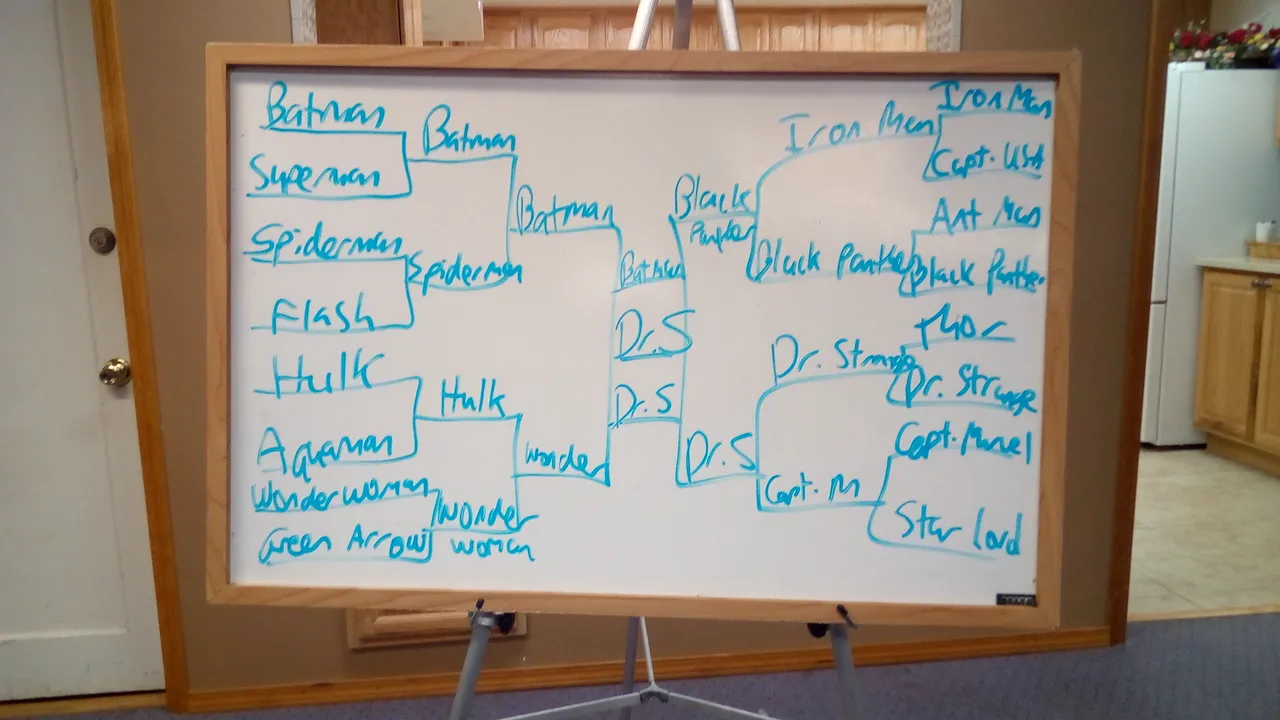 Batman
Superman
Spiderman
Flash
Hulk
Aquaman
Wonder Woman
Green Arrow
Batman
Spiderman
Hulk
Wonder
Woman
Batman
Wonder
Batman
Dr. S
Dr. S
Black
Panther
Dr. S
Iron Man
Black Panther
Dr. Strange
Capt. M
Iron Man
Capt. USA
Ant Man
Black Panther
Thor
Dr. Strange
Capt. Marvel
Star Lord